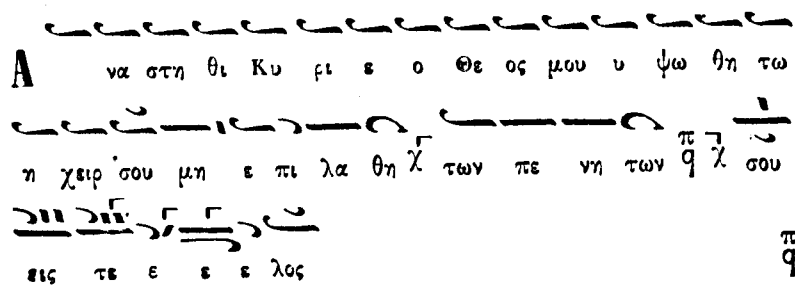 Α να στη θι Κυ ρι ε ο Θε ος μου υ ψω θη τω
η χειρ σου μη ε πι λα θη χ των πε νη των π q χ σου
εις τε ε ε ε λος π q